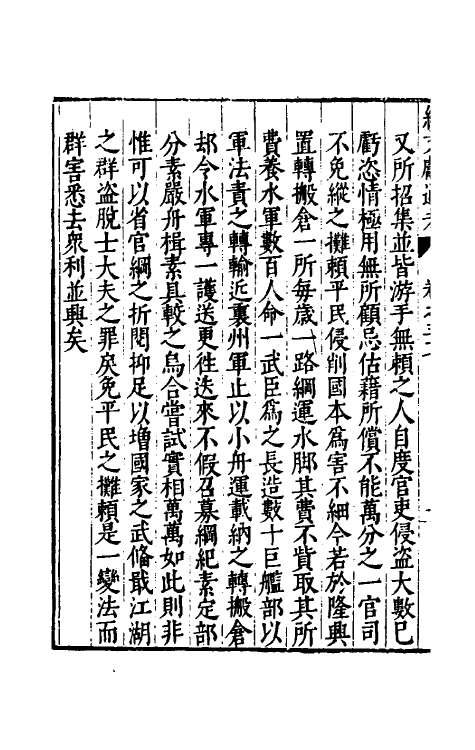 又所招集並皆游手無頼之人自度官吏侵盗大數已
虧恣情極用無所顧忌估籍所償不能萬分之一官司
不免縱之攤頼平民侵削國本爲害不細今若於隆興
置轉搬倉一所每歲一路綱運水脚其費不貲取其所
費養水軍數百人命一武臣爲之長造數十巨艦部以
軍法責之轉輸近裏州軍止以小舟運載納之轉搬倉
却令水軍專一護送更徃迭來不假召募綱紀素定部
分素嚴舟楫素具較之烏合嘗試實相萬萬如此則非
惟可以省官綱之折閱抑足以増國家之武備戢江湖
之群盗脫士大夫之罪戾免平民之攤頼是一變法而
群害悉去衆利並興矣